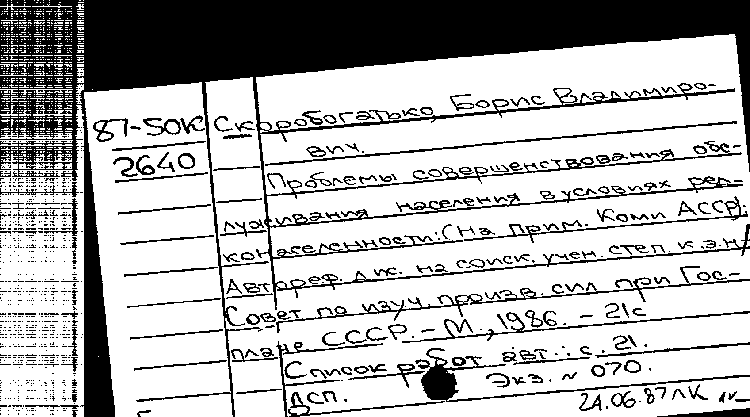 87-50К Скоробогатько, Борис Владимиро-
2640 вич.
Проблемы совершенствования обс-
луживания населения в условиях ред-
конаселенности: (На прим. Коми АССР):
Автореф. дис. на соиск. учен. степ. к.э.н/
Совет по изуч. произв. сил при Гос-
плане СССР. - М., 1986. - 21с
Список работ авт.: с. 21.
ДСП. Экз. № 070.
24.06.87 ЛК